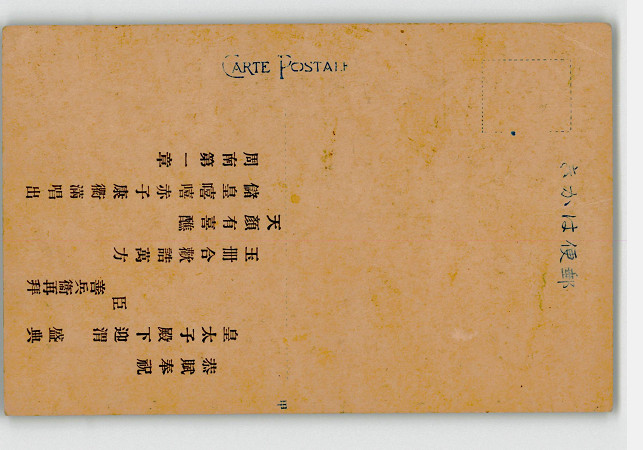 CARTE POSTALE
きかは便郵
恭賦奉祝
皇太子殿下迎渭盛典
臣 善兵衞再拜
玉冊合獻誥萬方
天顏有喜醮
儲皇嘻嘻赤子康衢滿唱出
周南第一章